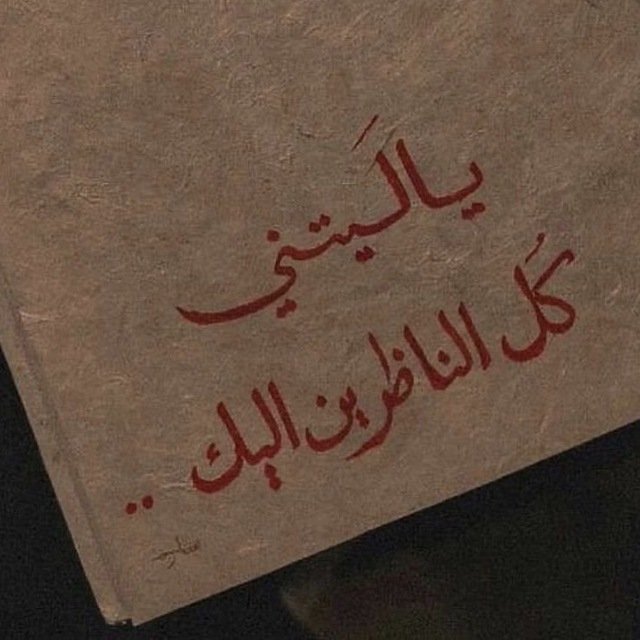 يالَيتني
كُل الناظرين اليك ..